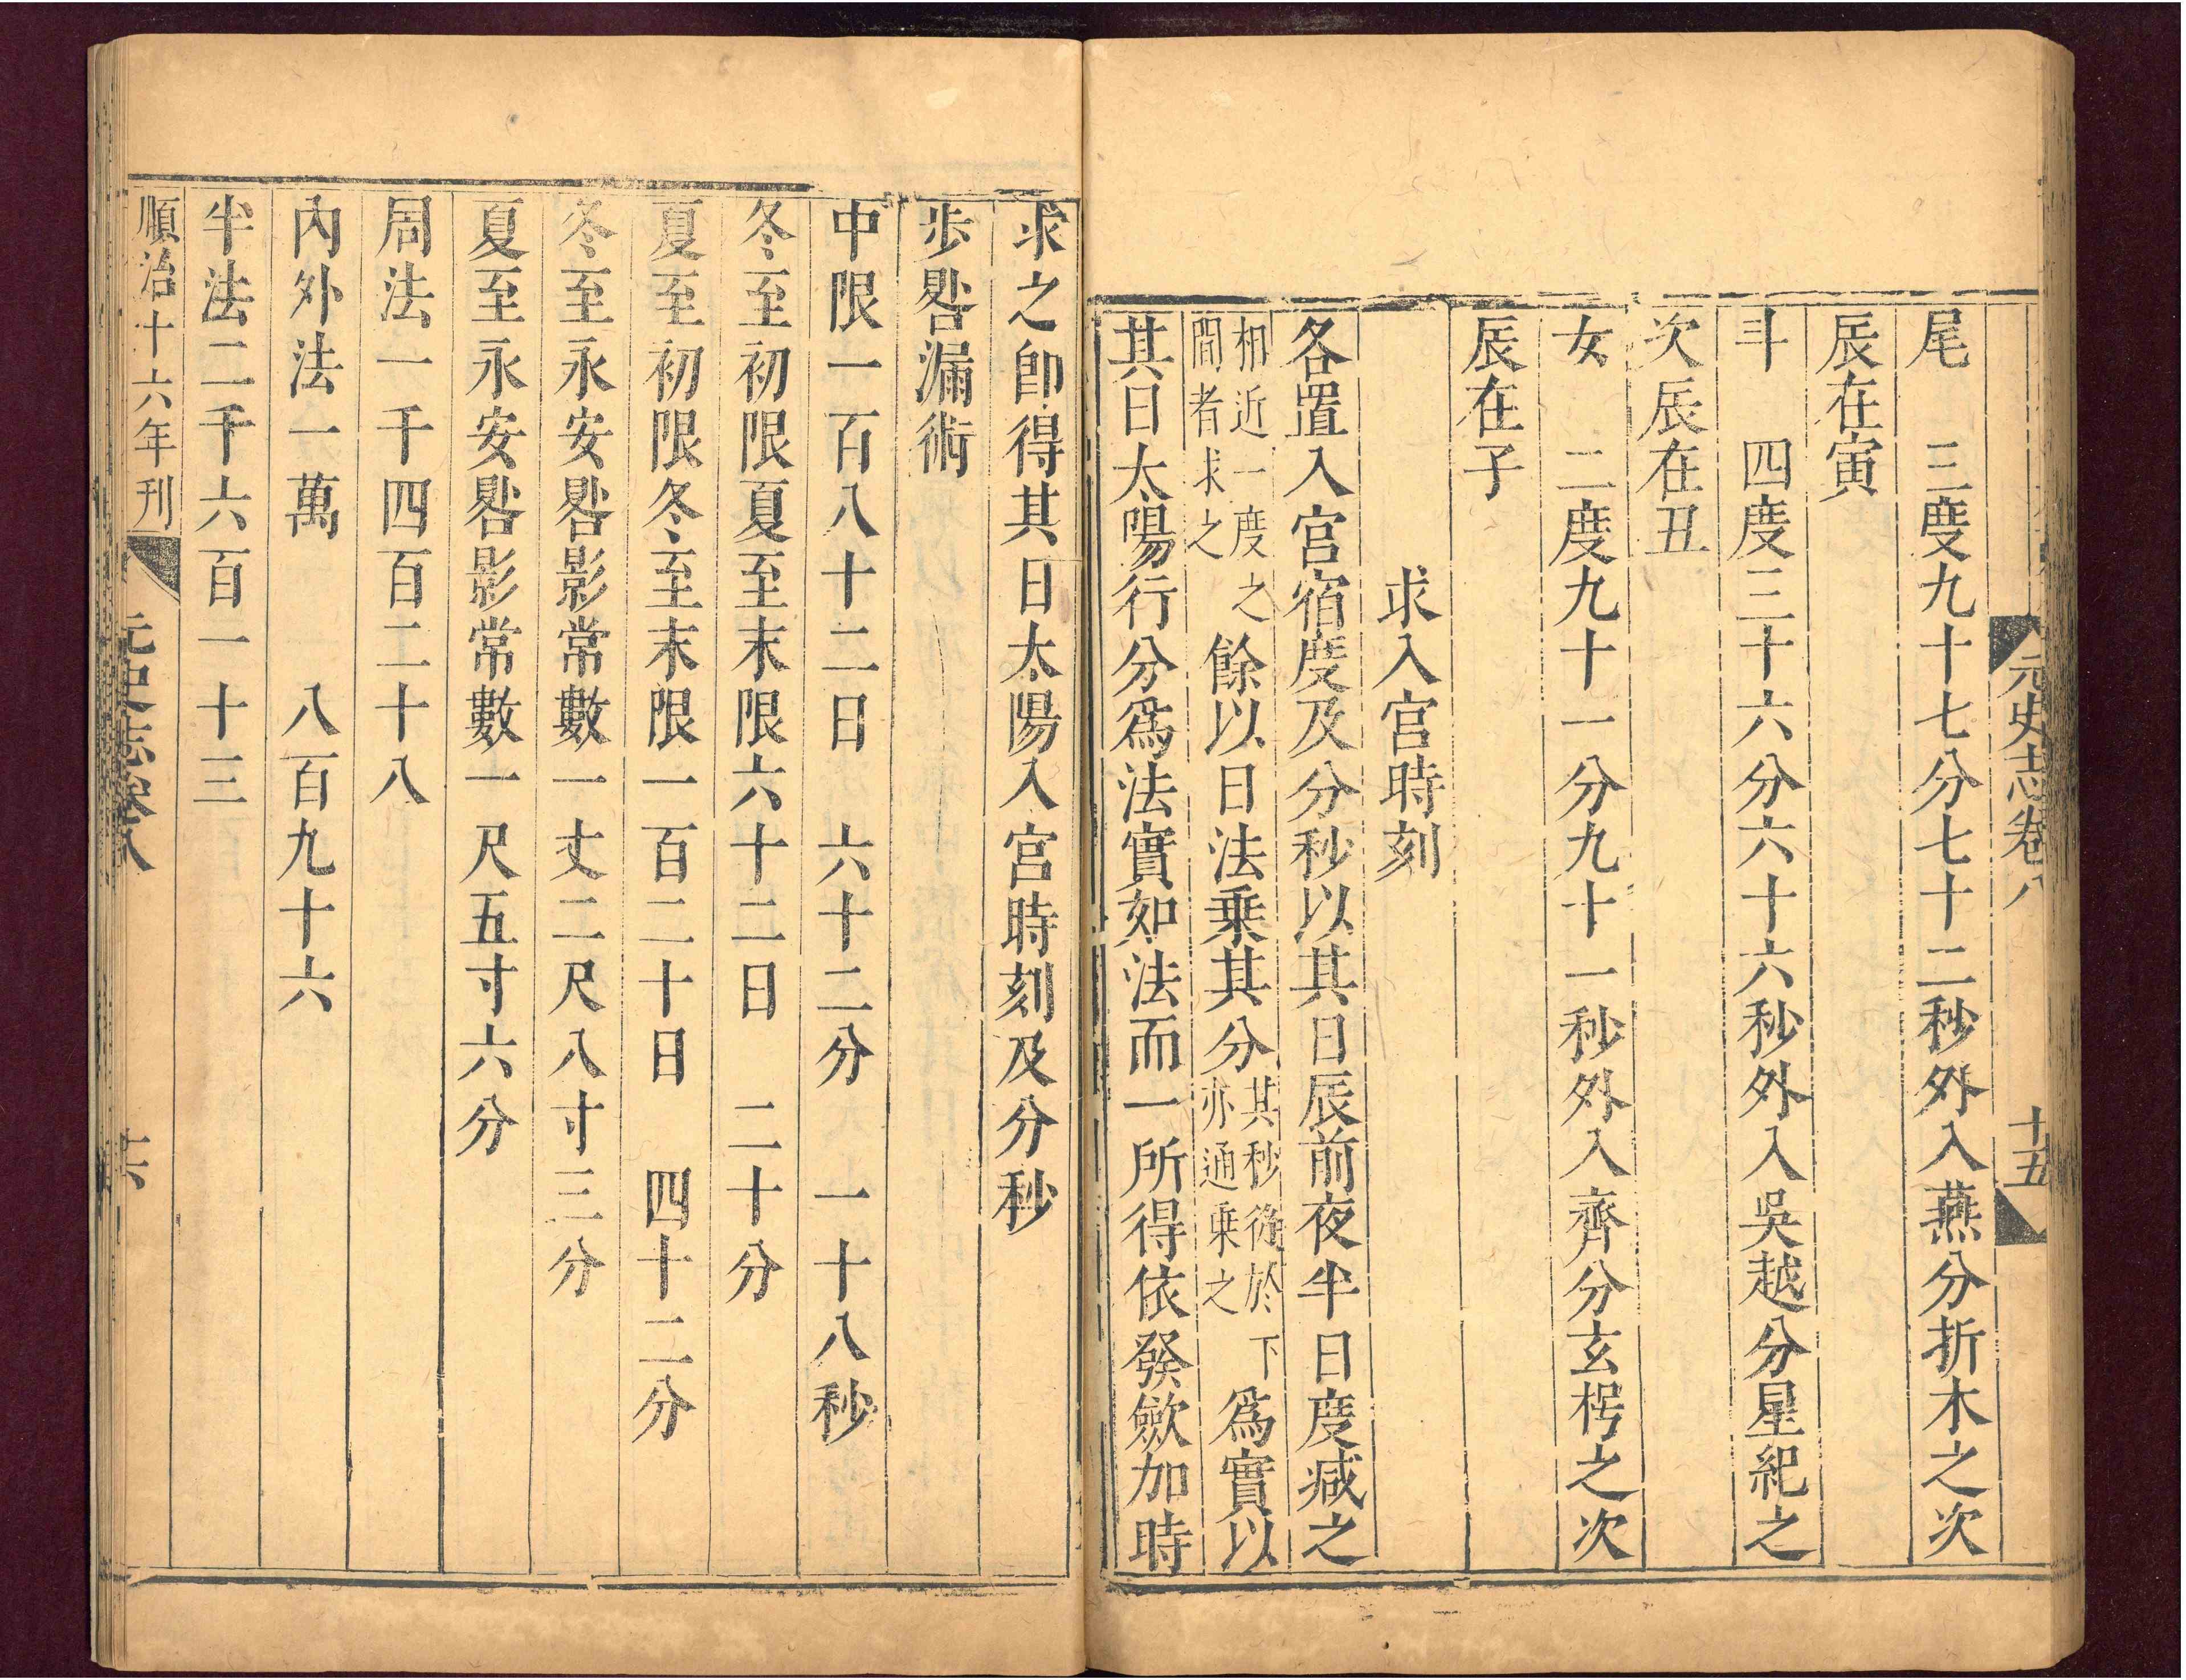 元史志卷八 十五
尾 三度九十七分七十二秒外入燕分折木之次
辰在寅
斗 四度三十六分六十六秒外入吳越分星紀之
次辰在丑
女 二度九十一分九十一秒外入齊分玄枵之次
辰在子
求入宮時刻
各置入宮宿度及分秒以其日辰前夜半日度減之
相近一度之
間者求之
餘以日法乘其分
其秒從於下
亦通乘之
爲實以
其日太陽行分爲法實如法而一所得依發歛加時
求之卽得其日太陽入宮時刻及分秒
步晷漏術
中限一百八十二日 六十二分 一十八秒
冬至初限夏至末限六十二日 二十分
夏至初限冬至末限一百二十日 四十二分
冬至永安晷影常數一丈二尺八寸三分
夏至永安晷影常數一尺五寸六分
周法一千四百二十八
內外法一萬 八百九十六
半法二千六百一十三
順治十六年刊 元史志卷八 十六